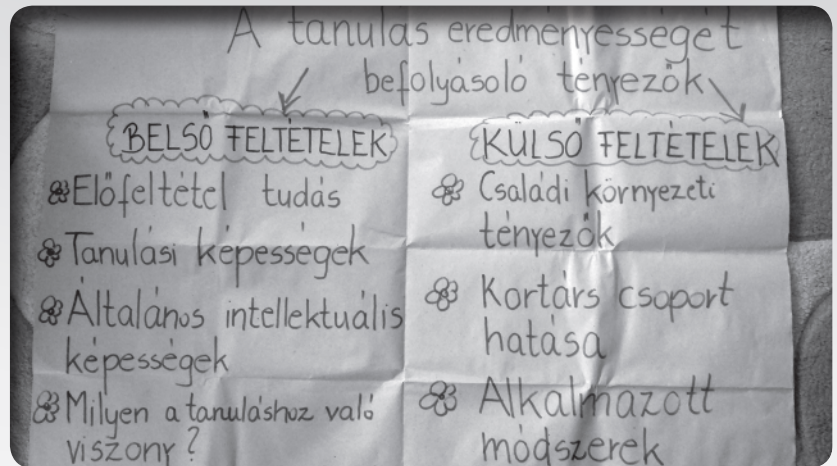 A tanulás eredményességét
befolyásoló tényezők
BELSŐ FELTÉTELEK
Előfeltétel tudás
Tanulási képességek
Általános intellektuális
képességek
Milyen a tanuláshoz való
viszony?
KÜLSŐ FELTÉTELEK
Családi környezeti
tényezők
Kortárs csoport
hatása
Alkalmazott
módszerek